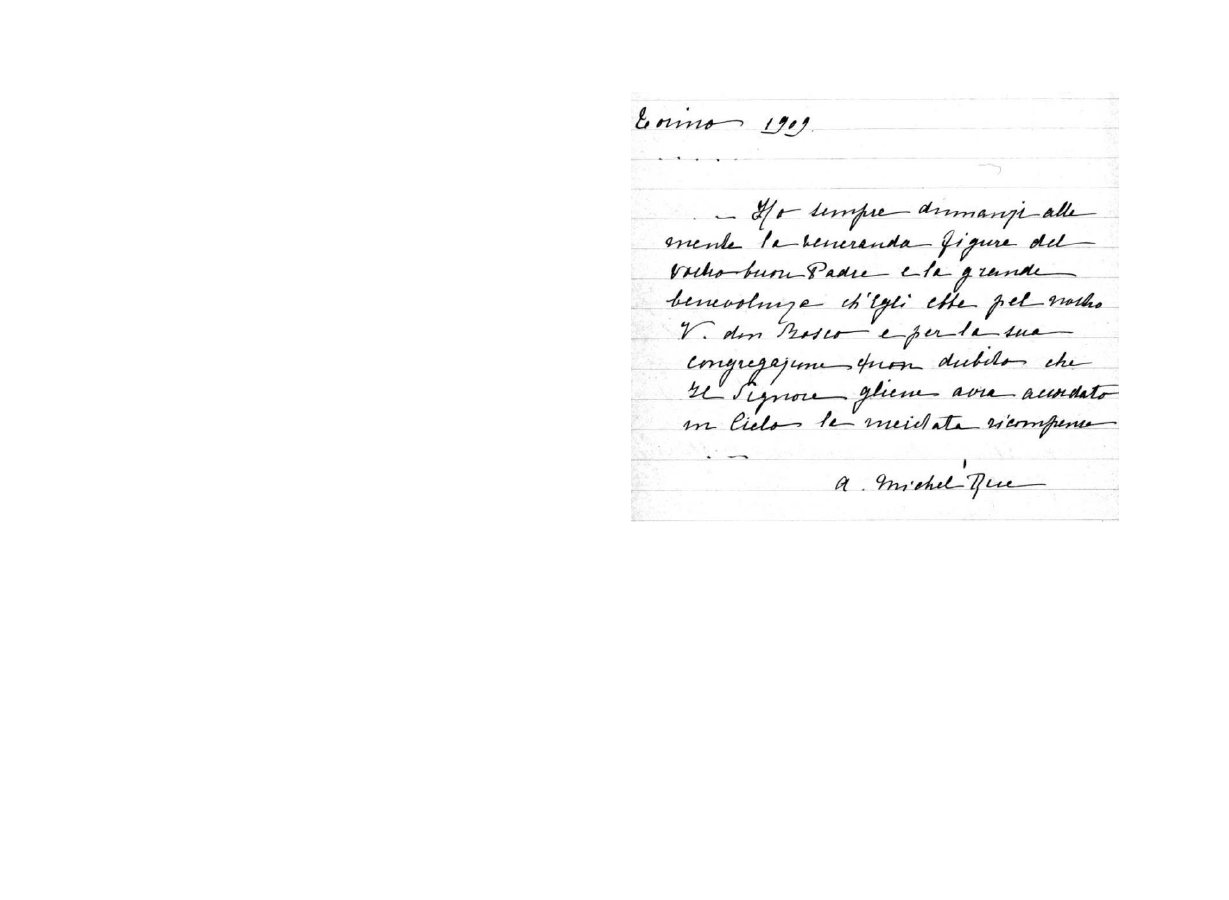 Torino 1909.
. . . . .
. _ Ho sempre dinnanzi alla
mente la veneranda figura del
vostro buon Padre e la grande
benevolenza ch'Egli ebbe pel nostro
V. don Bosco e per la sua
congregazione non dubito che
Il Signore gliene avra accordato
in Cielo la meritata ricompensa
. . _
a. Michel Rua